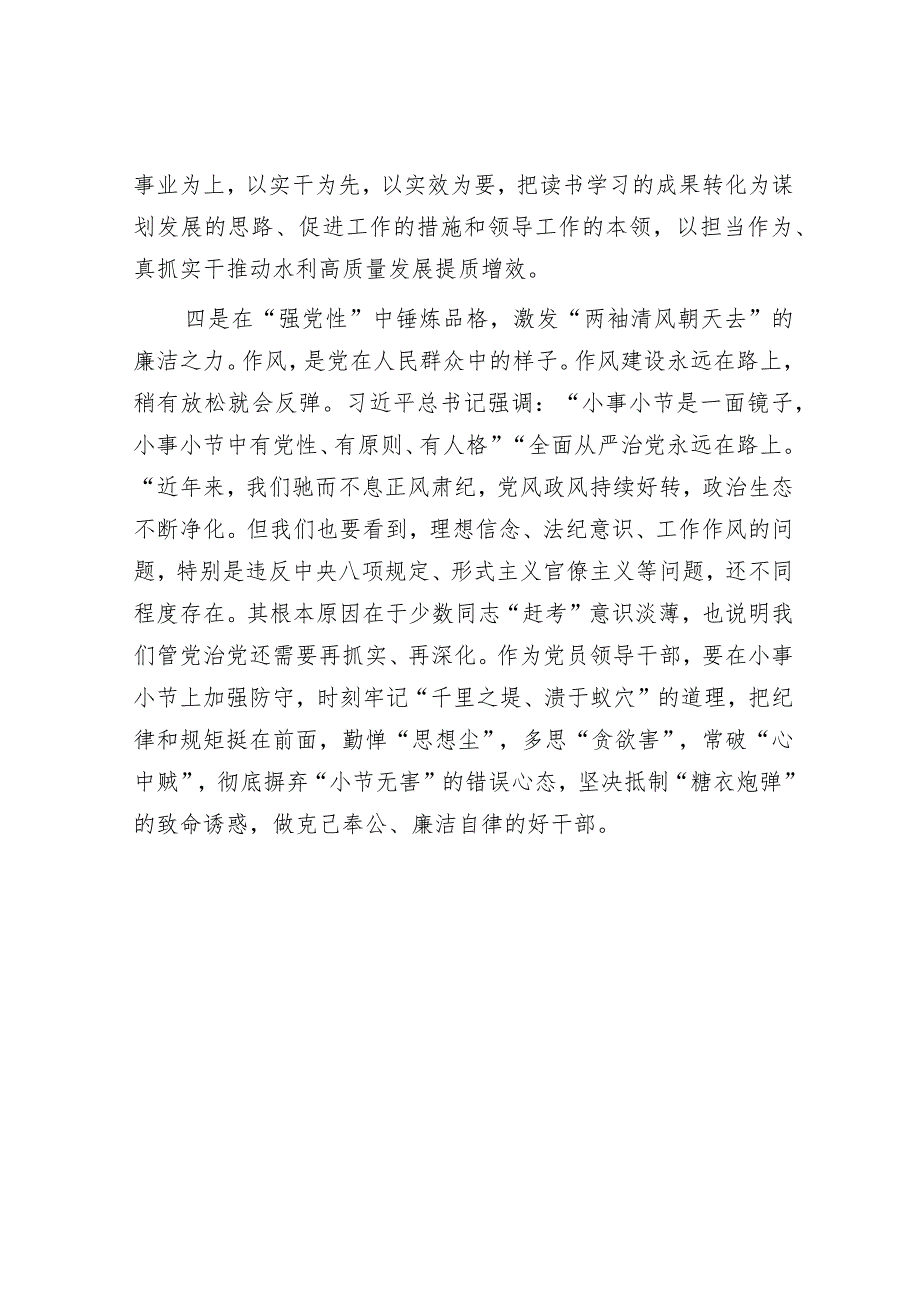 事业为上，以实干为先，以实效为要，把读书学习的成果转化为谋
划发展的思路、促进工作的措施和领导工作的本领，以担当作为、
真抓实干推动水利高质量发展提质增效。
四是在“强党性”中锤炼品格，激发“两袖清风朝天去”的
廉洁之力。作风，是党在人民群众中的样子。作风建设永远在路上，
稍有放松就会反弹。习近平总书记强调：“小事小节是一面镜子，
小事小节中有党性、有原则、有人格”“全面从严治党永远在路上。
“近年来，我们驰而不息正风肃纪，党风政风持续好转，政治生态
不断净化。但我们也要看到，理想信念、法纪意识、工作作风的问
题，特别是违反中央八项规定、形式主义官僚主义等问题，还不同
程度存在。其根本原因在于少数同志“赶考”意识淡薄，也说明我
们管党治党还需要再抓实、再深化。作为党员领导干部，要在小事
小节上加强防守，时刻牢记“千里之堤、溃于蚁穴”的道理，把纪
律和规矩挺在前面，勤惮“思想尘”，多思“贪欲害”，常破“心
中贼”，彻底摒弃“小节无害”的错误心态，坚决抵制“糖衣炮弹”
的致命诱惑，做克己奉公、廉洁自律的好干部。